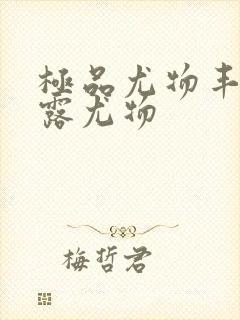 極品尤物丰
露尤物
梅哲君